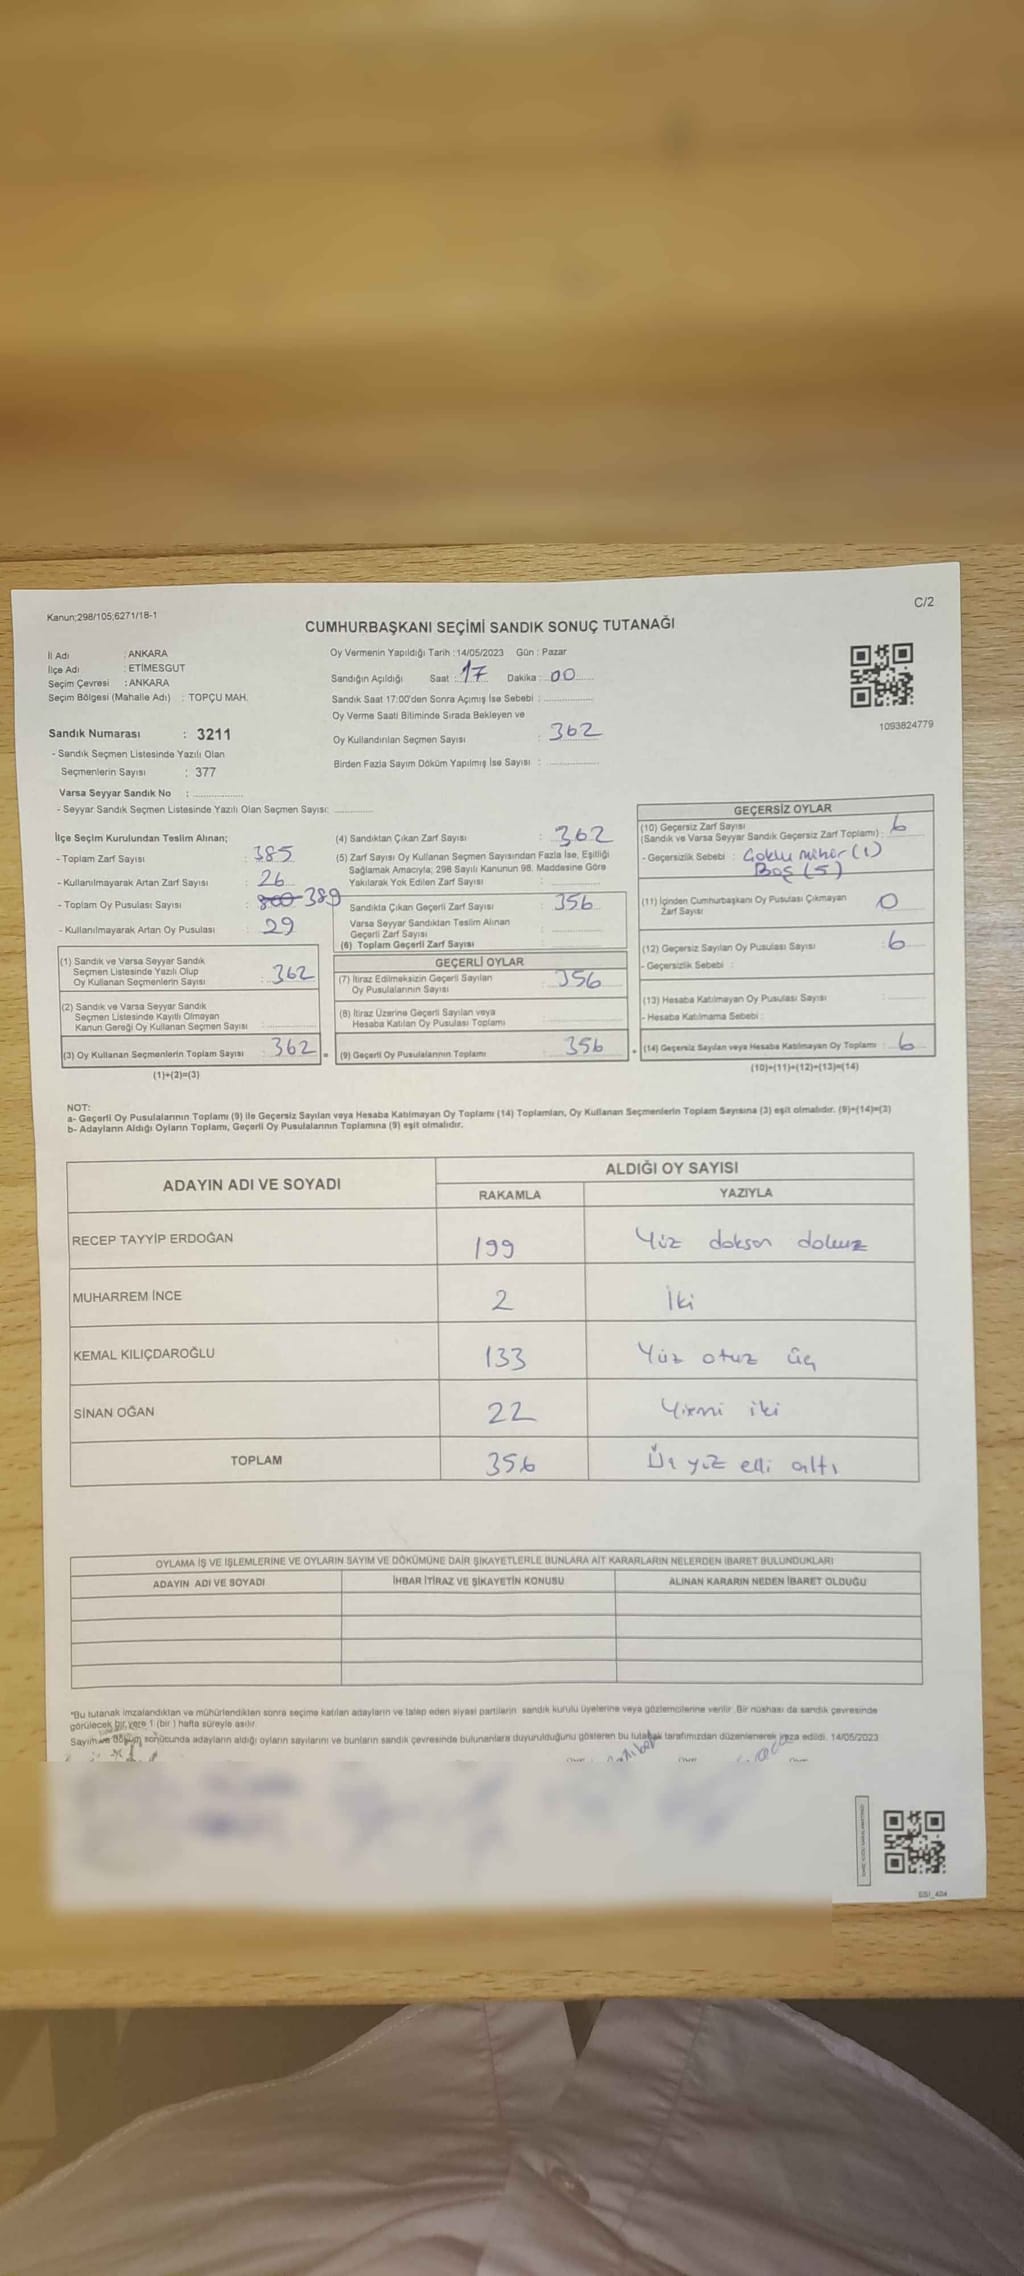 Kanun;298/105;6271/18-1
C/2
CUMHURBAŞKANI SEÇİMİ SANDIK SONUÇ TUTANAĞI
İl Adı : ANKARA
İlçe Adı : ETİMESGUT
Seçim Çevresi : ANKARA
Seçim Bölgesi (Mahalle Adı) : TOPÇU MAH.
Sandık Numarası : 3211
- Sandık Seçmen Listesinde Yazılı Olan
Seçmenlerin Sayısı : 377
Varsa Seyyar Sandık No :
- Seyyar Sandık Seçmen Listesinde Yazılı Olan Seçmen Sayısı:
Oy Vermenin Yapıldığı Tarih :14/05/2023 Gün : Pazar
Sandığın Açıldığı Saat : 17 Dakika : 00
Sandık Saat 17:00'den Sonra Açımış İse Sebebi :
Oy Verme Saati Bitiminde Sırada Bekleyen ve
Oy Kullandırılan Seçmen Sayısı : 362
Birden Fazla Sayım Döküm Yapılmış İse Sayısı :
1093824779
İlçe Seçim Kurulundan Teslim Alınan;
- Toplam Zarf Sayısı : 385
- Kullanılmayarak Artan Zarf Sayısı : 26
- Toplam Oy Pusulası Sayısı : 389
- Kullanılmayarak Artan Oy Pusulası : 29
(1) Sandık ve Varsa Seyyar Sandık
Seçmen Listesinde Yazılı Olup
Oy Kullanan Seçmenlerin Sayısı : 362
(2) Sandık ve Varsa Seyyar Sandık
Seçmen Listesinde Kayıtlı Olmayan
Kanun Gereği Oy Kullanan Seçmen Sayısı :
(3) Oy Kullanan Seçmenlerin Toplam Sayısı : 362 =
(1)+(2)=(3)
(4) Sandıktan Çıkan Zarf Sayısı : 362
(5) Zarf Sayısı Oy Kullanan Seçmen Sayısından Fazla İse, Eşitliği
Sağlamak Amacıyla; 298 Sayılı Kanunun 98. Maddesine Göre
Yakılarak Yok Edilen Zarf Sayısı :
Sandıkta Çıkan Geçerli Zarf Sayısı : 356
Varsa Seyyar Sandıktan Teslim Alınan
Geçerli Zarf Sayısı :
(6) Toplam Geçerli Zarf Sayısı :
GEÇERLİ OYLAR
(7) İtiraz Edilmeksizin Geçerli Sayılan
Oy Pusulalarının Sayısı : 356
(8) İtiraz Üzerine Geçerli Sayılan veya
Hesaba Katılan Oy Pusulası Toplamı :
(9) Geçerli Oy Pusulalarının Toplamı : 356 +
GEÇERSİZ OYLAR
(10) Geçersiz Zarf Sayısı
(Sandık ve Varsa Seyyar Sandık Geçersiz Zarf Toplamı) : 6
- Geçersizlik Sebebi : Çoklu mühür (1)
Boş (5)
(11) İçinden Cumhurbaşkanı Oy Pusulası Çıkmayan
Zarf Sayısı : 0
(12) Geçersiz Sayılan Oy Pusulası Sayısı : 6
- Geçersizlik Sebebi :
(13) Hesaba Katılmayan Oy Pusulası Sayısı :
- Hesaba Katılmama Sebebi :
(14) Geçersiz Sayılan veya Hesaba Katılmayan Oy Toplamı : 6
(10)+(11)+(12)+(13)=(14)
NOT:
a- Geçerli Oy Pusulalarının Toplamı (9) ile Geçersiz Sayılan veya Hesaba Katılmayan Oy Toplamı (14) Toplamları, Oy Kullanan Seçmenlerin Toplam Sayısına (3) eşit olmalıdır. (9)+(14)=(3)
b- Adayların Aldığı Oyların Toplamı, Geçerli Oy Pusulalarının Toplamına (9) eşit olmalıdır.
ADAYIN ADI VE SOYADI
ALDIĞI OY SAYISI
RAKAMLA YAZIYLA
RECEP TAYYİP ERDOĞAN 199 Yüz doksan dokuz
MUHARREM İNCE 2 İki
KEMAL KILIÇDAROĞLU 133 Yüz otuz üç
SİNAN OĞAN 22 Yirmi iki
TOPLAM 356 Üç yüz elli altı
OYLAMA İŞ VE İŞLEMLERİNE VE OYLARIN SAYIM VE DÖKÜMÜNE DAİR ŞİKAYETLERLE BUNLARA AİT KARARLARIN NELERDEN İBARET BULUNDUKLARI
ADAYIN ADI VE SOYADI İHBAR İTİRAZ VE ŞİKAYETİN KONUSU ALINAN KARARIN NEDEN İBARET OLDUĞU
*Bu tutanak imzalandıktan ve mühürlendikten sonra seçime katılan adayların ve talep eden siyasi partilerin sandık kurulu üyelerine veya gözlemcilerine verilir. Bir nüshası da sandık çevresinde
görülecek bir yere 1 (bir ) hafta süreyle asılır.
Sayım ve döküm sonucunda adayların aldığı oyların sayılarını ve bunların sandık çevresinde bulunanlara duyurulduğunu gösteren bu tutanak tarafımızdan düzenlenerek imza edildi. 14/05/2023